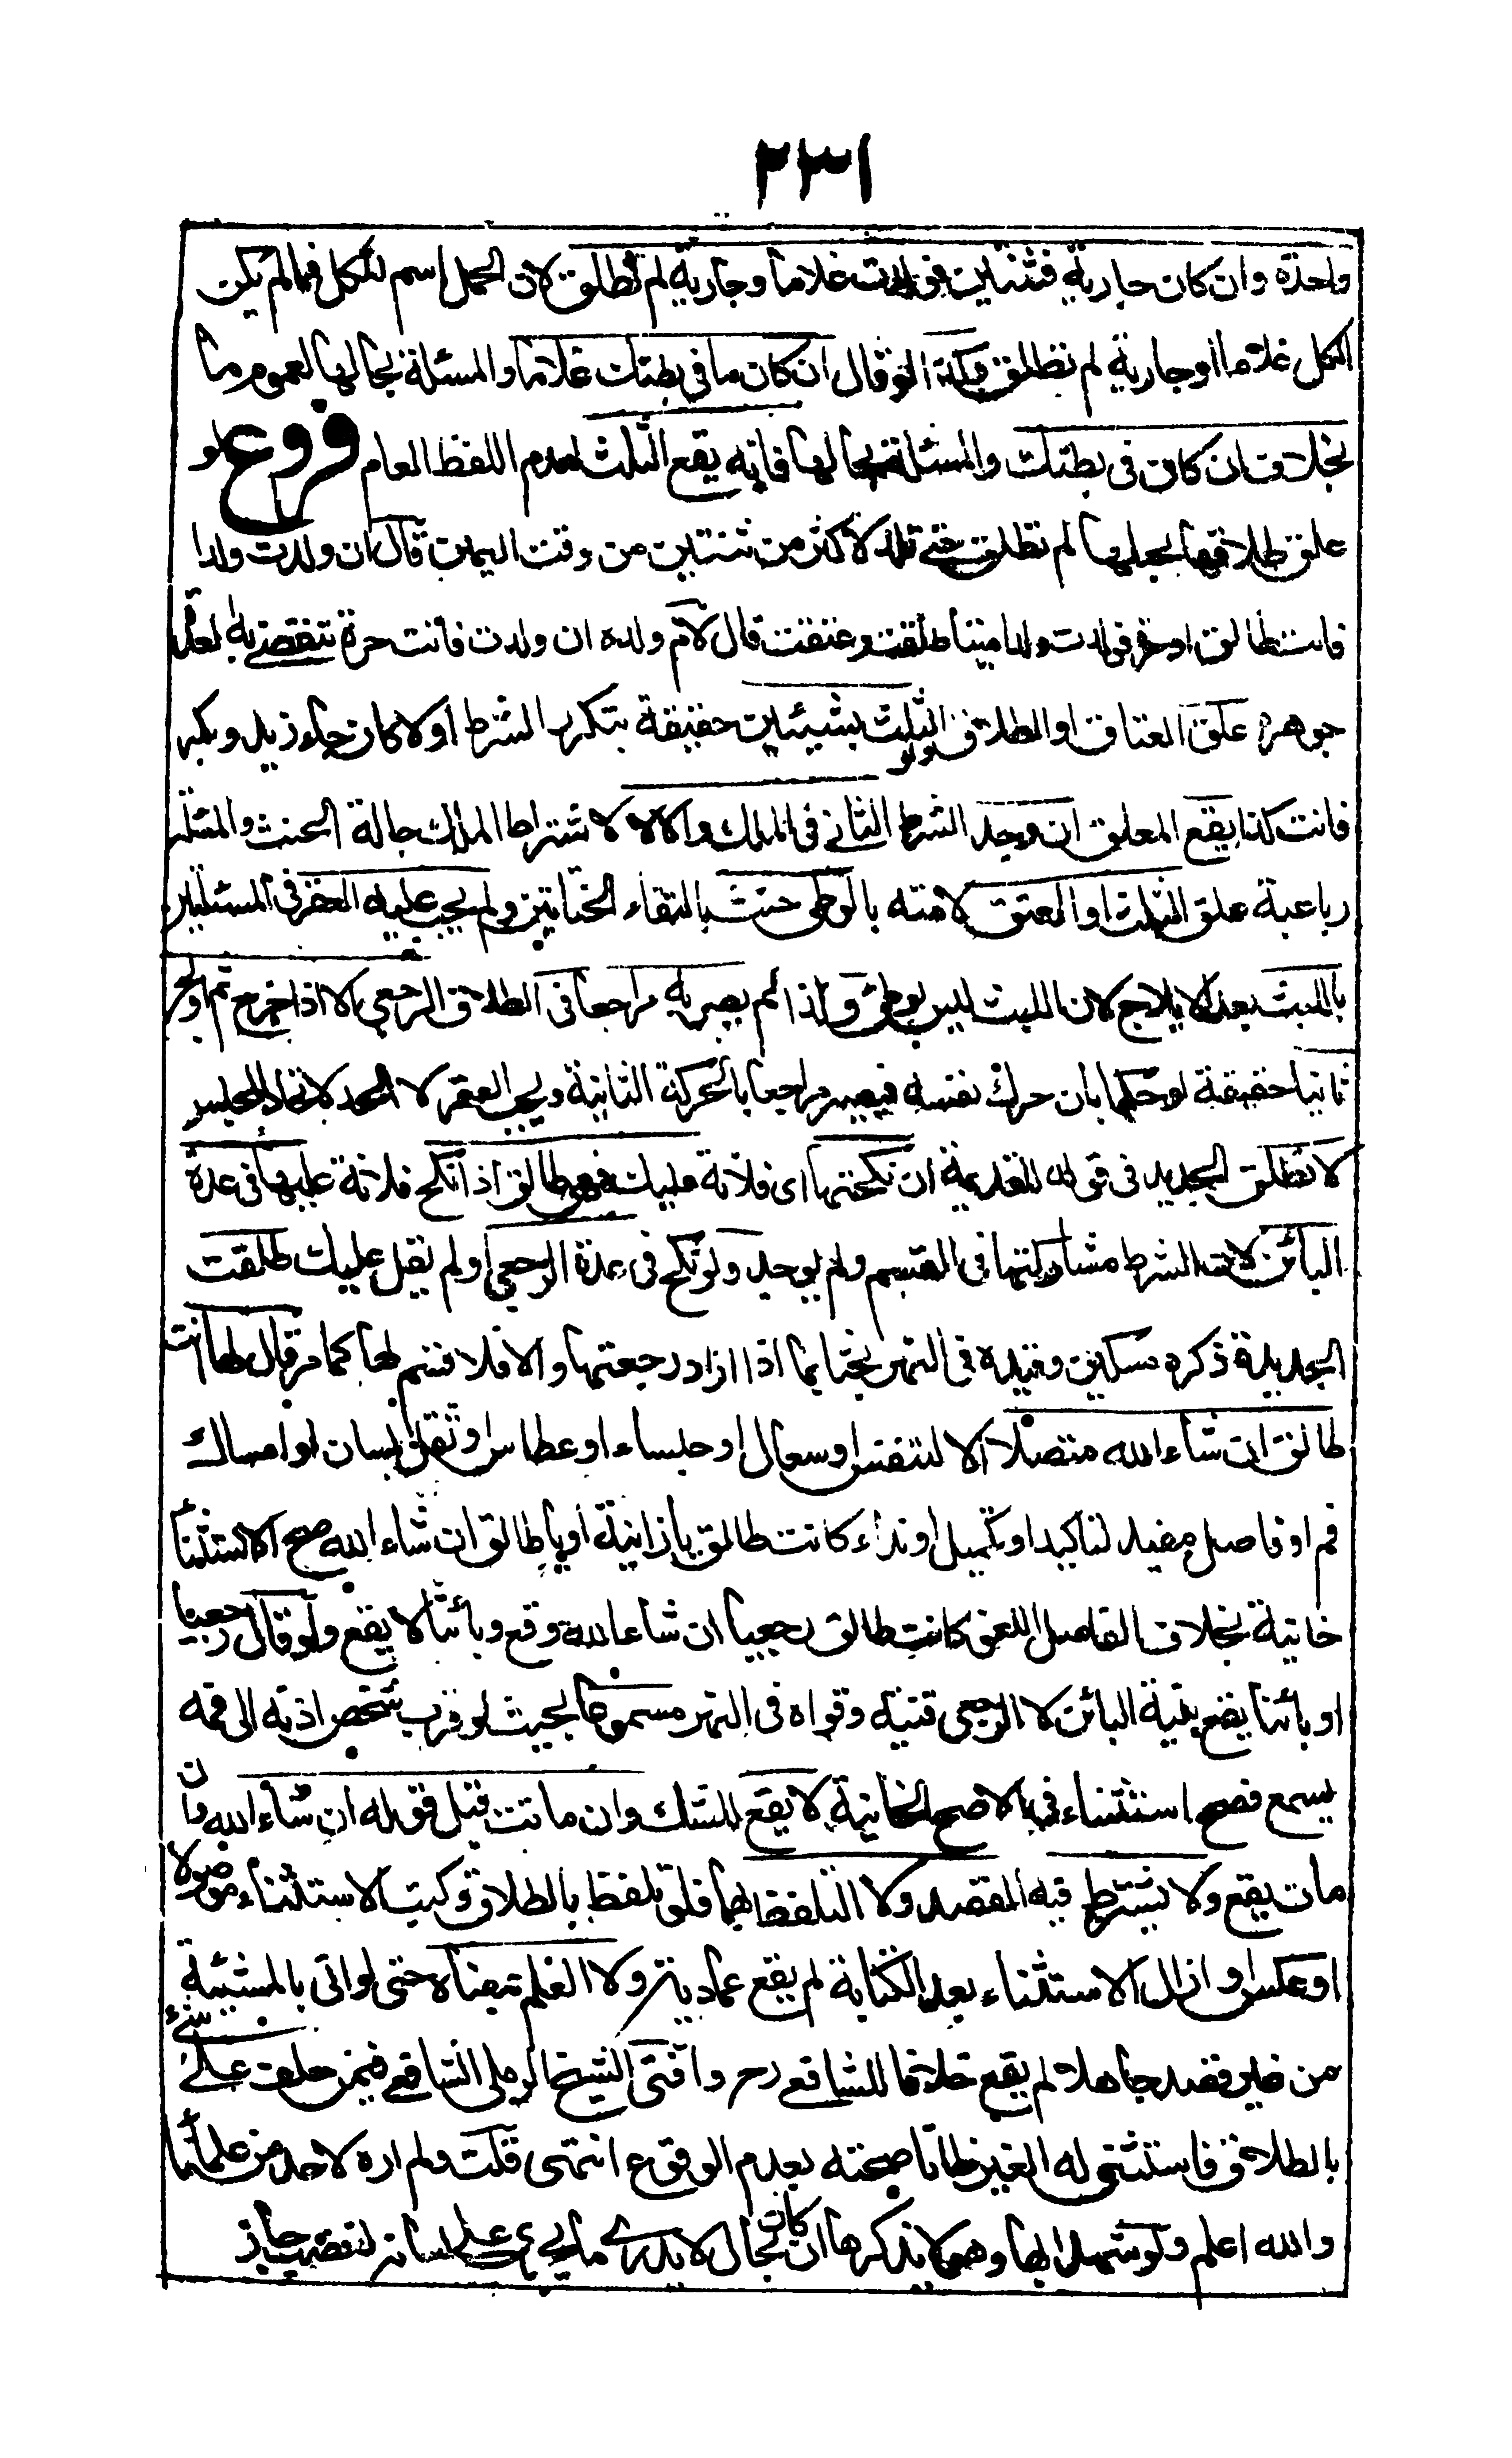 ٢٣١
واحدة وان كان جارية فثنتين فولدت غلاما وجارية لم تطلق لان الحمل اسم للكل فما لم يكن
الكل غلاما او جارية لم تطلق وكذا لو قال ان كان ما في بطنك غلاما والمسئلة بحالها لعموم ما
بخلاف ان كان في بطنك والمسئلة بحالها فانه يقع الثلث لعدم اللفظ العام فروع لو
علق طلاقها بحبلها لم تطلق حتى تلد لاكثر من سنتين من وقت اليمين قال ان ولدت ولدا
فانت طالق او حرة فولدت ولدا ميتا طلقت وعتقت قال لام ولده ان ولدت فانت حرة تنقضي به العدة
جوهرة علق العتاق او الطلاق ولو الثلث بشيئين حقيقة بتكرر الشرط او لا كان جاء زيد وبكر
فانت كذا يقع المعلق ان وجد الشرط الثاني في الملك والا لا لاشتراط الملك حالة الحنث والمسئلة
رباعية علق الثلث او العتق لامته بالوطئ حنث بالتقاء الختانين ولم يجب عليه العقر في المسئلتين
باللبث بعد الايلاج لان اللبث ليس بوطئ ولذا لم يصر به مراجعا في الطلاق الرجعي الا اذا اخرج ثم اولج
ثانيا حقيقة او حكما بان حرك نفسه فيصير مراجعا بالحركة الثانية ويجب العقر لا الحد لاتحاد المجلس
لا تطلق الجديدة في قوله للقديمة ان نكحتها اي فلانة عليك فهي طالق اذا نكح فلانة عليها في عدة
البائن لان الشرط مشاركتها في القسم ولم يوجد ولو نكح في عدة الرجعي او لم يقل عليك طلقت
الجديدة ذكره مسكين وقيده في النهر بحثا بما اذا اراد رجعتها والا فلا قسم لها كما مر قال لها انت
طالق ان شاء الله متصلا الا لتنفس او سعال او جشاء او عطاس او ثقل لسان او امساك
فم او فاصل مفيد لتاكيد او تكميل او نداء كانت طالق يا زانية او يا طالق ان شاء الله صح الاستثناء
خانية بخلاف الفاصل اللغو كانت طالق رجعيا ان شاء الله وقع وبائنا لا يقع ولو قال رجعيا
او بائنا يقع بنية البائن لا الرجعي قنية وقواه في النهر مسموعا بحيث لو قرب شخص اذنه الى فمه
يسمع فصح استثناء في الاصح الخانية لا يقع للشك وان ماتت قبل قوله ان شاء الله وان
مات يقع ولا يشترط فيه القصد ولا التلفظ بهما فلو تلفظ بالطلاق وكتب الاستثناء موصولا
او عكس او ازال الاستثناء بعد الكتابة لم يقع عمادية ولا العلم بمعناه حتى لو اتى بالمشيئة
من غير قصد جاهلا لم يقع خلافا للشافعي رح وافتى الشيخ الرملي الشافعي فيمن حلف على شيء
بالطلاق فاستثنى له الغير ظانا صحته بعدم الوقوع انتهى قلت ولم اره لاحد من علمائنا
والله اعلم ولو شهدا بها وهو لا يذكرها ان كان بحال لا يدري ما يجري على لسانه لغضب جاز